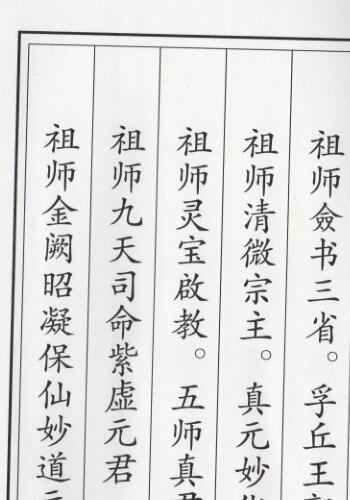 祖师僉书三省。孚丘王
祖师清微宗主。真元妙
祖师灵宝啟教。五师真君
祖师九天司命紫虚元君
祖师金阙昭凝保仙妙道元